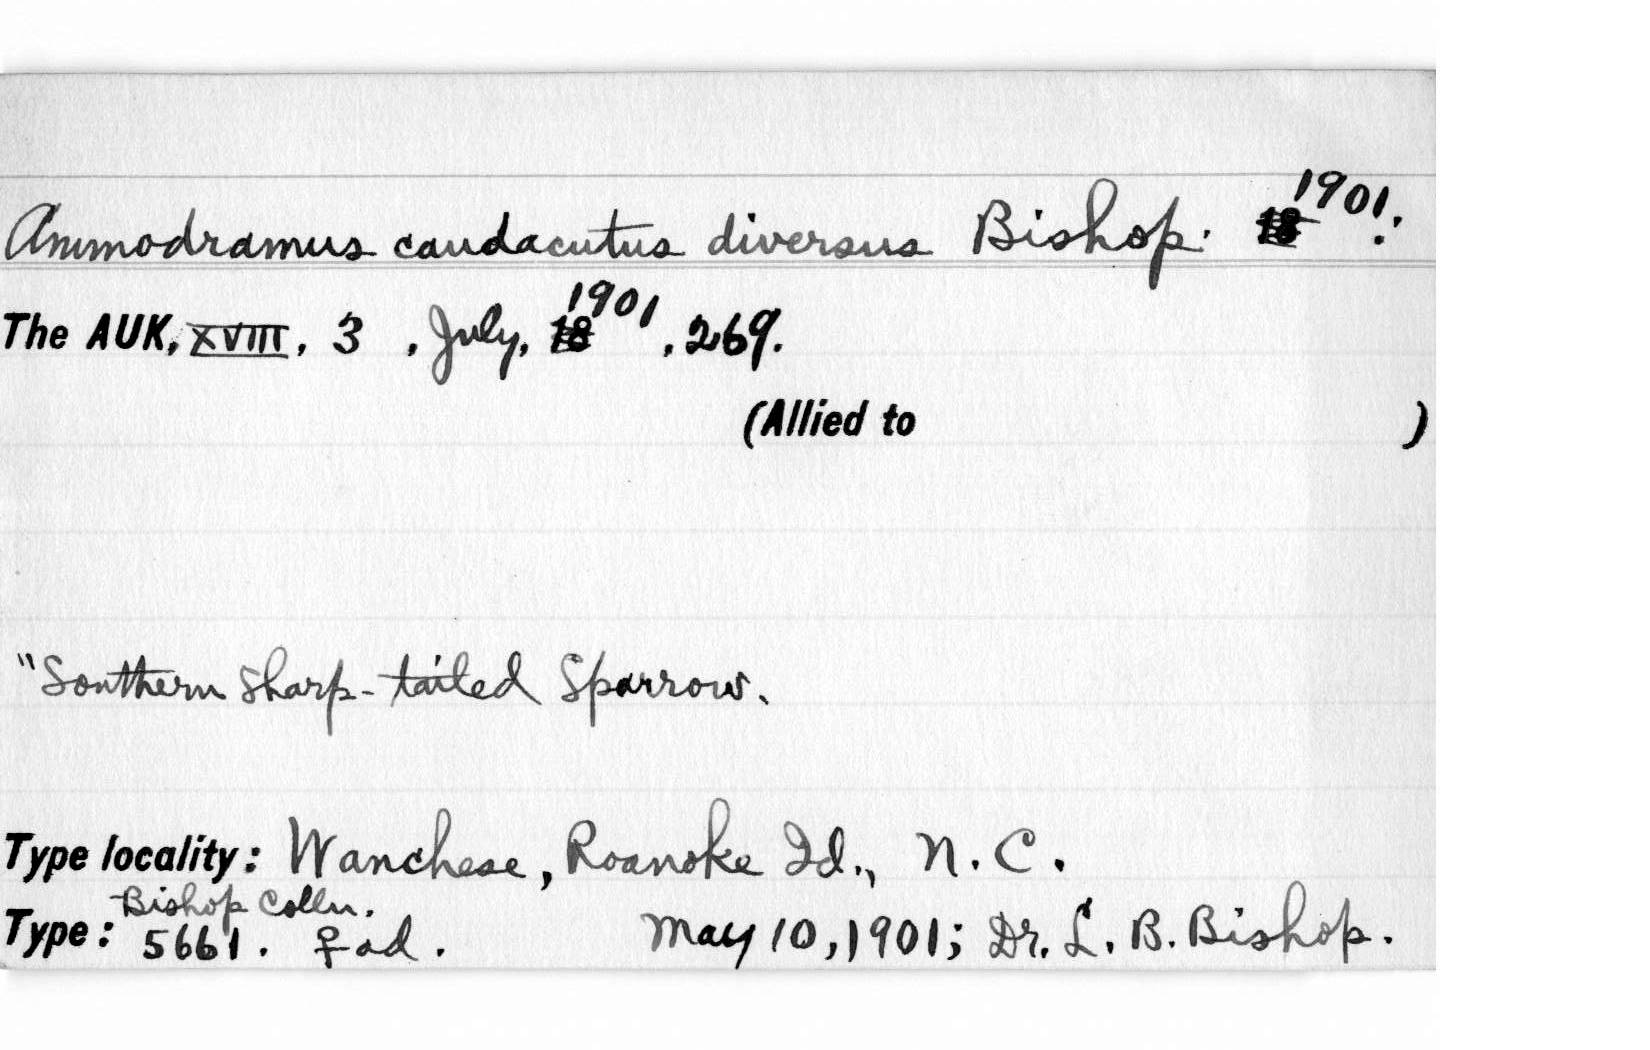 Ammodramus caudacutus diversus Bishop. 1901.
The AUK, XVIII, 3, July, 1901, 269.
(Allied to )
"Southern Sharp-tailed Sparrow.
Type locality: Wanchese, Roanoke Id., N. C.
Bishop Colln.
Type: 5661. ♀ ad. May 10, 1901; Dr. L. B. Bishop.